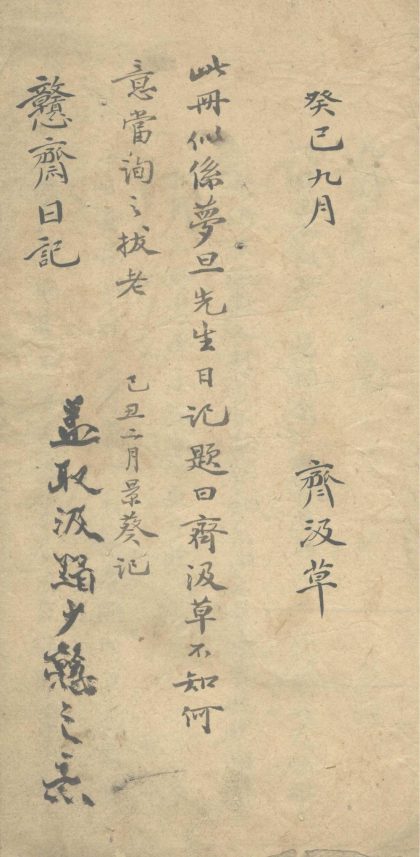 癸巳九月　齊汲草
此冊似係夢旦先生日記題曰齊汲草不知何
意當詢之拔老　己丑二月景葵記
戇齋日記
盖取汲黯少戇之意